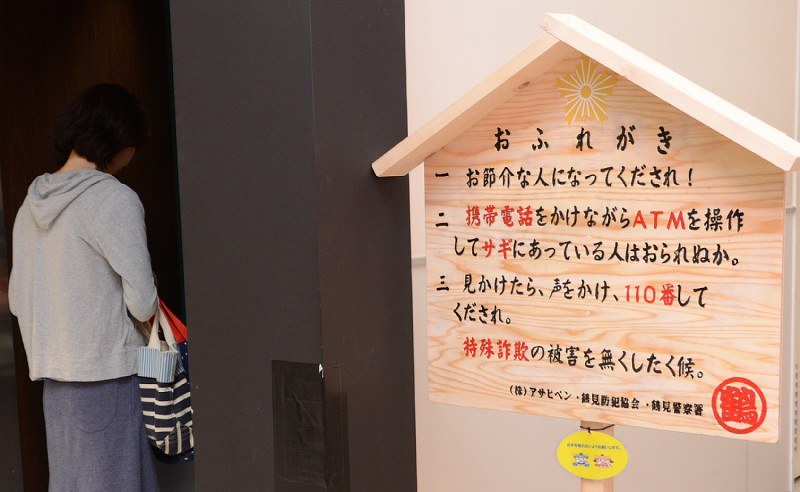 おふれがき
一 お節介な人になってくだされ！
二 携帯電話をかけながらATMを操作
してサギにあっている人はおられぬか。
三 見かけたら、声をかけ、110番して
くだされ。
特殊詐欺の被害を無くしたく候。
(株)アサヒペン・鶴見防犯協会・鶴見警察署
鶴